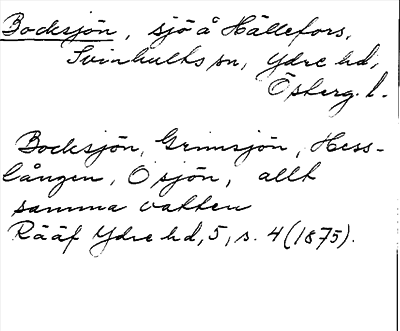 Bocksjön, sjö å Hällefors,
Svinhults sn, Ydre hd,
Österg. l.
Bocksjön, Grimsjön, Hess-
lången, Ösjön, allt
samma vatten
Rääf Ydre hd, 5, s. 4 (1875).